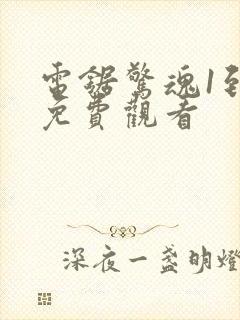 電鋸驚魂1到
免費觀看
深夜一盞明燈